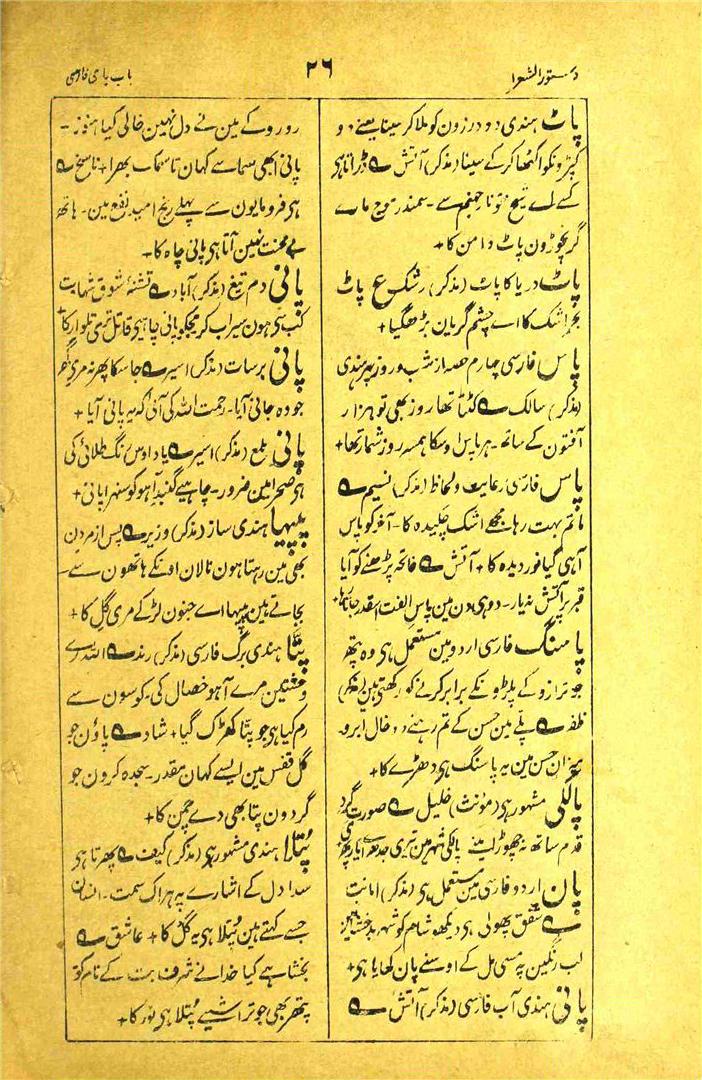 دستور الشعرا
۲۶
باب بای فارسی
پاٹ ہندی دو درزون کو ملا کر سینا یعنے دو
کپڑونکو اکٹھا کر کے سینا (مذکر) آتش ڈراتا ہی
کسے اے شیخ تو نار جہنم سے - سمندر موج مارے
گر نچوڑون پاٹ دامن کا +
پاٹ دریا کا پاٹ (مذکر) رشک ع پاٹ
بحر اشک کا اے چشم گریان بڑھ گیا +
پاس فارسی چہارم حصہ از شب و روز پہر ہندی
(مذکر) سالک کٹتا تھا روز بھی تو ہزار
آفتون کے ساتھ - ہر پاس اوسکا ہمسر روز شمار تھا +
پاس فارسی رعایت و لحاظ (مذکر) نسیم
ماتم بہت رہا مجھے اشک چکیدہ کا - آخر کو پاس
آہی گیا نور دیدہ کا + آتش فاتحہ پڑھنے کو آیا
قبر پر آتش نہ یار - دو ہی دن مین پاس الفت اسقدر جاتا رہا +
پاسنگ فارسی اردو مین مستعمل ہی وہ پتھر
جو ترازو کے پلڑونکے برابر کرنے کو رکھتے ہین (مذکر)
ظفر پلے مین حسن کے تم رہنے دو خال ابرو -
میزان حسن مین یہ پاسنگ ہی دھڑے کا +
پالکی مشہور ہی (مونث) خلیل صورت گرد
قدم ساتھ نہ چھوڑا مینے پالکی شہر مین تیری جدھر اے یار پھری
پان اردو فارسی مین مستعمل ہی (مذکر) امانت
شفق پھولی ہی دیکھو شام کو شہر بدخشان مین
لب رنگین پہ مسی مل کے اوسنے پان کھایا ہی +
پانی ہندی آب فارسی (مذکر) آتش
رو رو کے مین نے دل نہین خالی کیا ہنوز -
پانی ابھی سما سے کہان تا سمک بھرا + ناسخ
ہی فرومایون سے پہلے رنج امید نفع مین - ہاتھ
بے محنت نہین آتا ہی پانی چاہ کا -
پانی دم تیغ (مذکر) آباد تشنۂ شوق شہادت
کب سے ہون سیراب کر مجکو پانی چاہیے قاتل تری تلوار کا +
پانی برسات (مذکر) اسیر جا سکا پھر نہ مرے گھر
جو وہ جانی آیا - رحمت اللہ کی آئی کہ یہ پانی آیا +
پانی ملمع (مذکر) اسیر یاد اوس رنگ طلائی کی
ہی صحرا مین ضرور - چاہیے گنبد آہو کو سنہرا پانی +
پپیہا ہندی ساز (مذکر) وزیر پس از مردن
بھی مین رہتا ہون نالان اونکے ہاتھون سے -
بجاتے ہین پپیہا اے جنون لڑکے مری گل کا +
پتا ہندی برگ فارسی (مذکر) رند اللہ رے
وحشتین مرے آہو خصال کی - کوسون سے
رم کیا ہی جو پتا کھڑک گیا + شاد پاؤن جو
گل قفس مین ایسے کہان مقدر - سجدہ کرون جو
گردون پتا بھی دے چمن کا +
پُتلا ہندی مشہور ہی (مذکر) کیف پھرتا ہی
سدا دل کے اشارے پہ ہر اک سمت - انسان
جسے کہتے ہین پُتلا ہی یہ گل کا + عاشق
بخشا ہے کیا خدا نے شرف بت کے نام کو
پتھر بھی جو تراشیے پُتلا ہی نور کا +